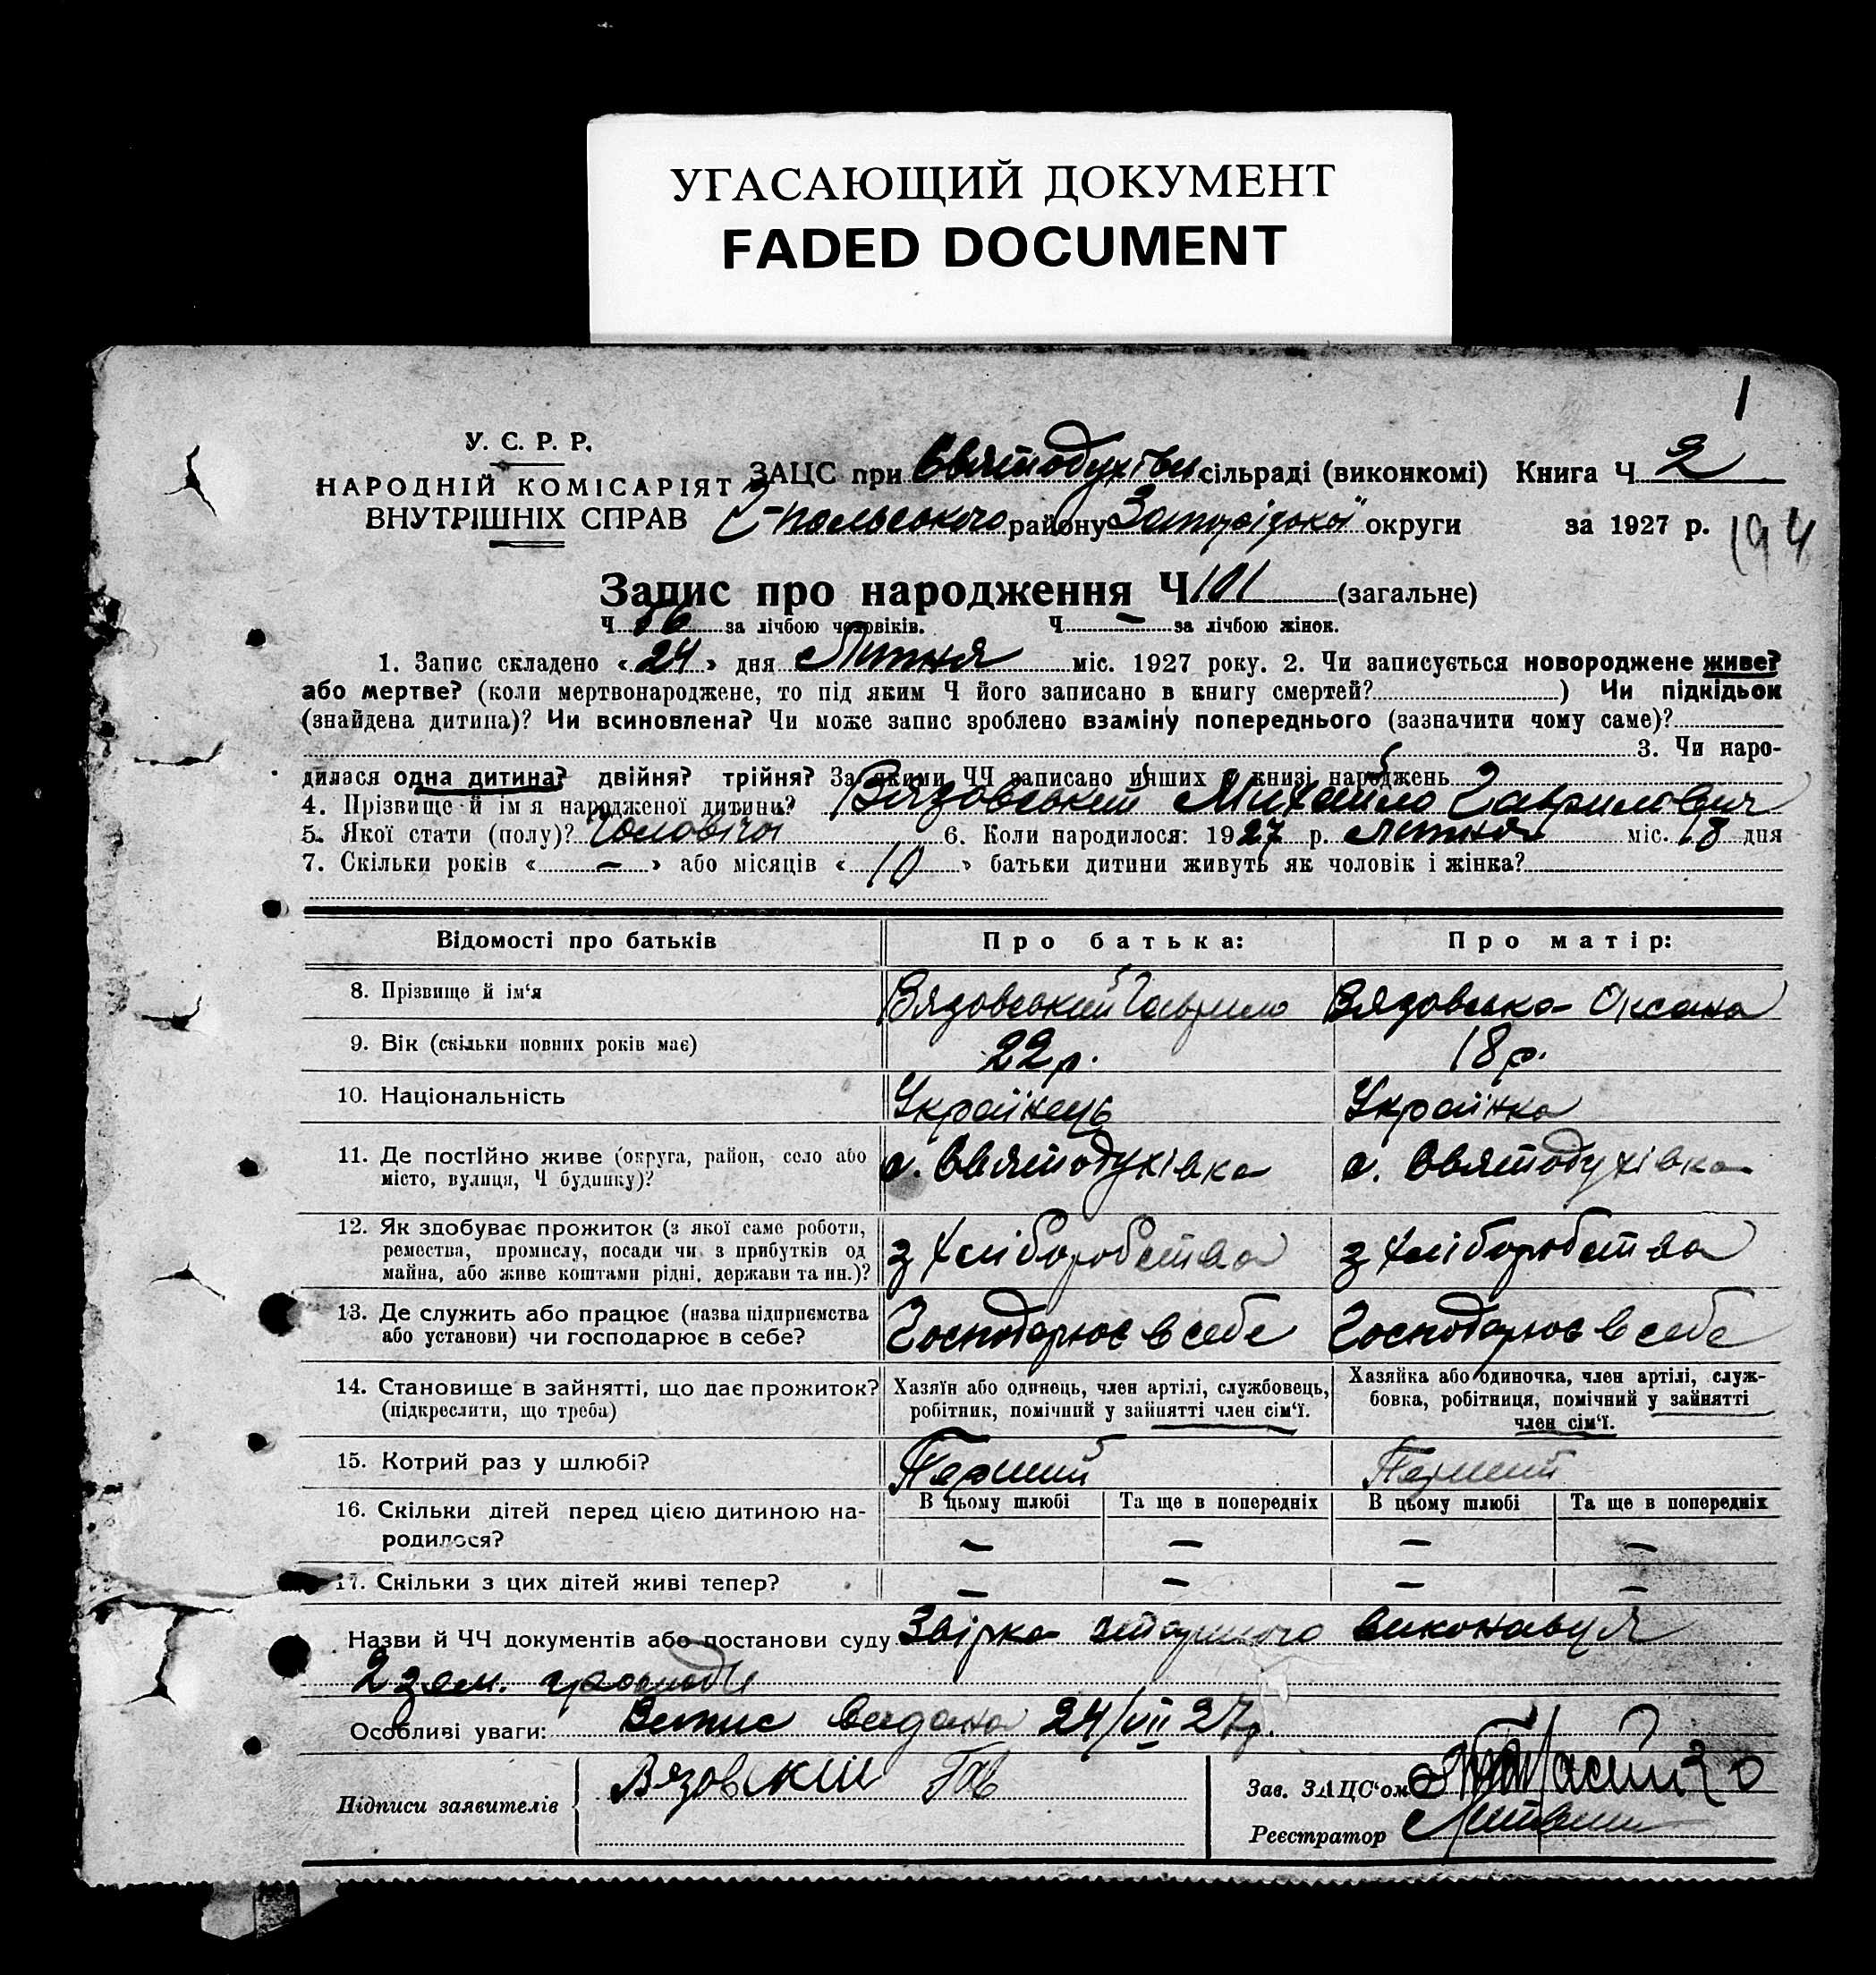 УГАСАЮЩИЙ ДОКУМЕНТ
FADED DOCUMENT
1
У. С. Р. Р.
НАРОДНІЙ КОМІСАРІЯТ
ВНУТРІШНІХ СПРАВ
ЗАЦС при Святодухівській сільраді (виконкомі) Книга Ч 2
З-польського району Запорізької округи за 1927 р.
194
Запис про народження Ч 101 (загальне)
Ч 56 за лічбою чоловіків. Ч — за лічбою жінок.
1. Запис складено «24» дня Липня міс. 1927 року. 2. Чи записується новороджене живе?
або мертве? (коли мертвонароджене, то під яким Ч його записано в книгу смертей?) Чи підкідьок
(знайдена дитина)? Чи всиновлена? Чи може запис зроблено взаміну попереднього (зазначити чому саме)?
3. Чи наро-
дилася одна дитина? двійня? трійня? За якими ЧЧ записано инших в книзі народжень
4. Прізвище й ім'я народженої дитини? Вязовський Михайло Гаврилович
5. Якої стати (полу)? Чоловічої 6. Коли народилося: 1927 р. липня міс. 18 дня
7. Скільки років «—» або місяців «10» батьки дитини живуть як чоловік і жінка?
Відомості про батьків Про батька: Про матір:
8. Прізвище й ім'я Вязовський Гаврило Вязовська Оксана
9. Вік (скільки повних років має) 22 р. 18 р.
10. Національність Українець Українка
11. Де постійно живе (округа, район, село або
місто, вулиця, Ч будинку)? с. Святодухівка с. Святодухівка
12. Як здобуває прожиток (з якої саме роботи,
ремества, промислу, посади чи з прибутків од
майна, або живе коштами рідні, держави та ин.)? з хліборобства з хліборобства
13. Де служить або працює (назва підприємства
або установи) чи господарює в себе? Господарює в себе Господарює в себе
14. Становище в зайнятті, що дає прожиток?
(підкреслити, що треба)
Хазяїн або одинець, член артілі, службовець,
робітник, помічний у зайнятті член сім'ї.
Хазяйка або одиночка, член артілі, служ-
бовка, робітниця, помічний у зайнятті
член сім'ї.
15. Котрий раз у шлюбі? Перший Перший
В цьому шлюбі Та ще в попередніх В цьому шлюбі Та ще в попередніх
16. Скільки дітей перед цією дитиною на-
родилося? — — — —
17. Скільки з цих дітей живі тепер? — — — —
Назви й ЧЧ документів або постанови суду Звірка старшого виконавця
2 зем. громади
Особливі уваги: Витис видано 24/VII 27р.
Підписи заявителів Вязовский Гав
Зав. ЗАЦС'ом
Реєстратор